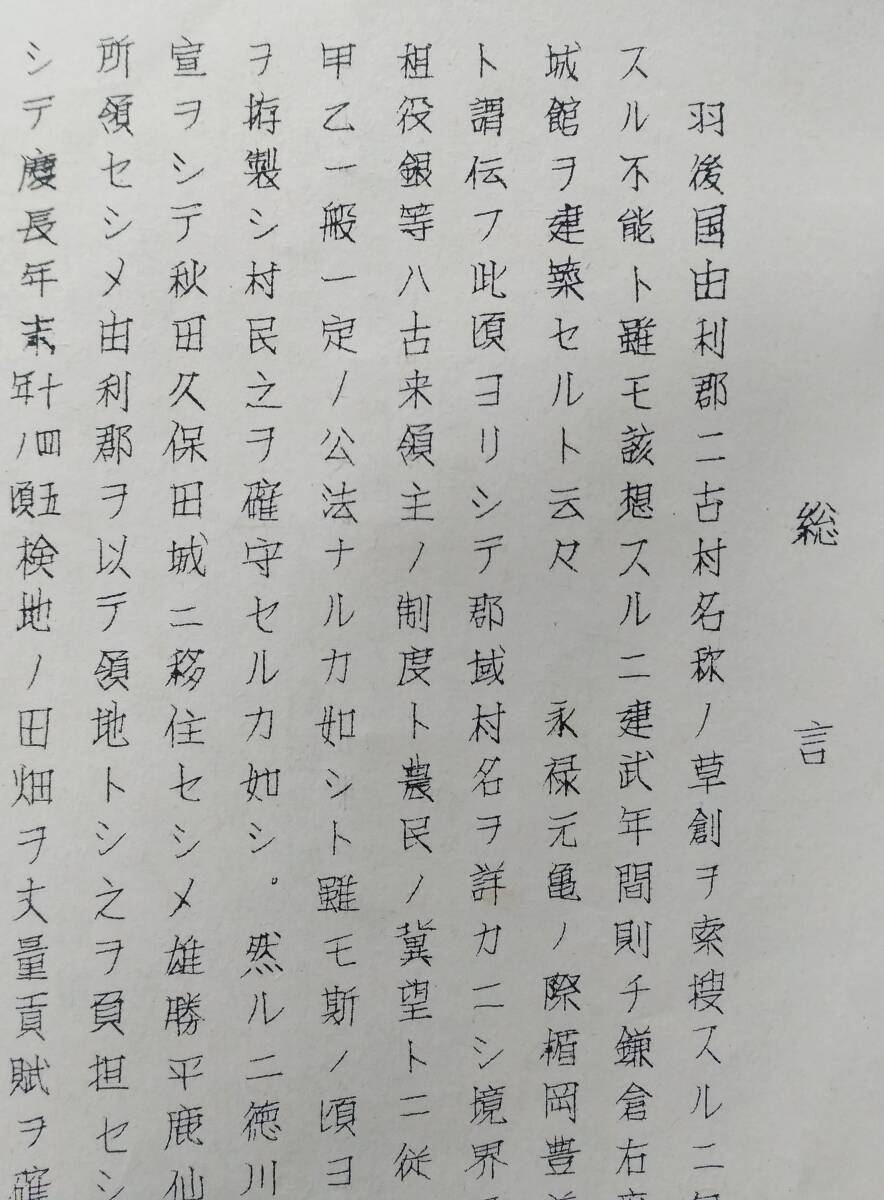 総言
羽後国由利郡ニ古村名称ノ草創ヲ索捜スルニ
スル不能ト雖モ該想スルニ建武年間則チ鎌倉右
城館ヲ建築セルト云々　永禄元亀ノ際楯岡豊
ト謂伝フ此頃ヨリシテ郡域村名ヲ詳カニシ境界
租役銀等ハ古来領主ノ制度ト農民ノ冀望トニ従
甲乙一般一定ノ公法ナルカ如シト雖モ斯ノ頃ヨ
ヲ拵製シ村民之ヲ確守セルカ如シ。然ルニ徳川
宣ヲシテ秋田久保田城ニ移住セシメ雄勝平鹿仙
所領セシメ由利郡ヲ以テ領地トシ之ヲ負担セシ
シテ慶長年末十四五年ノ頃検地ノ田畑ヲ丈量貢賦ヲ確